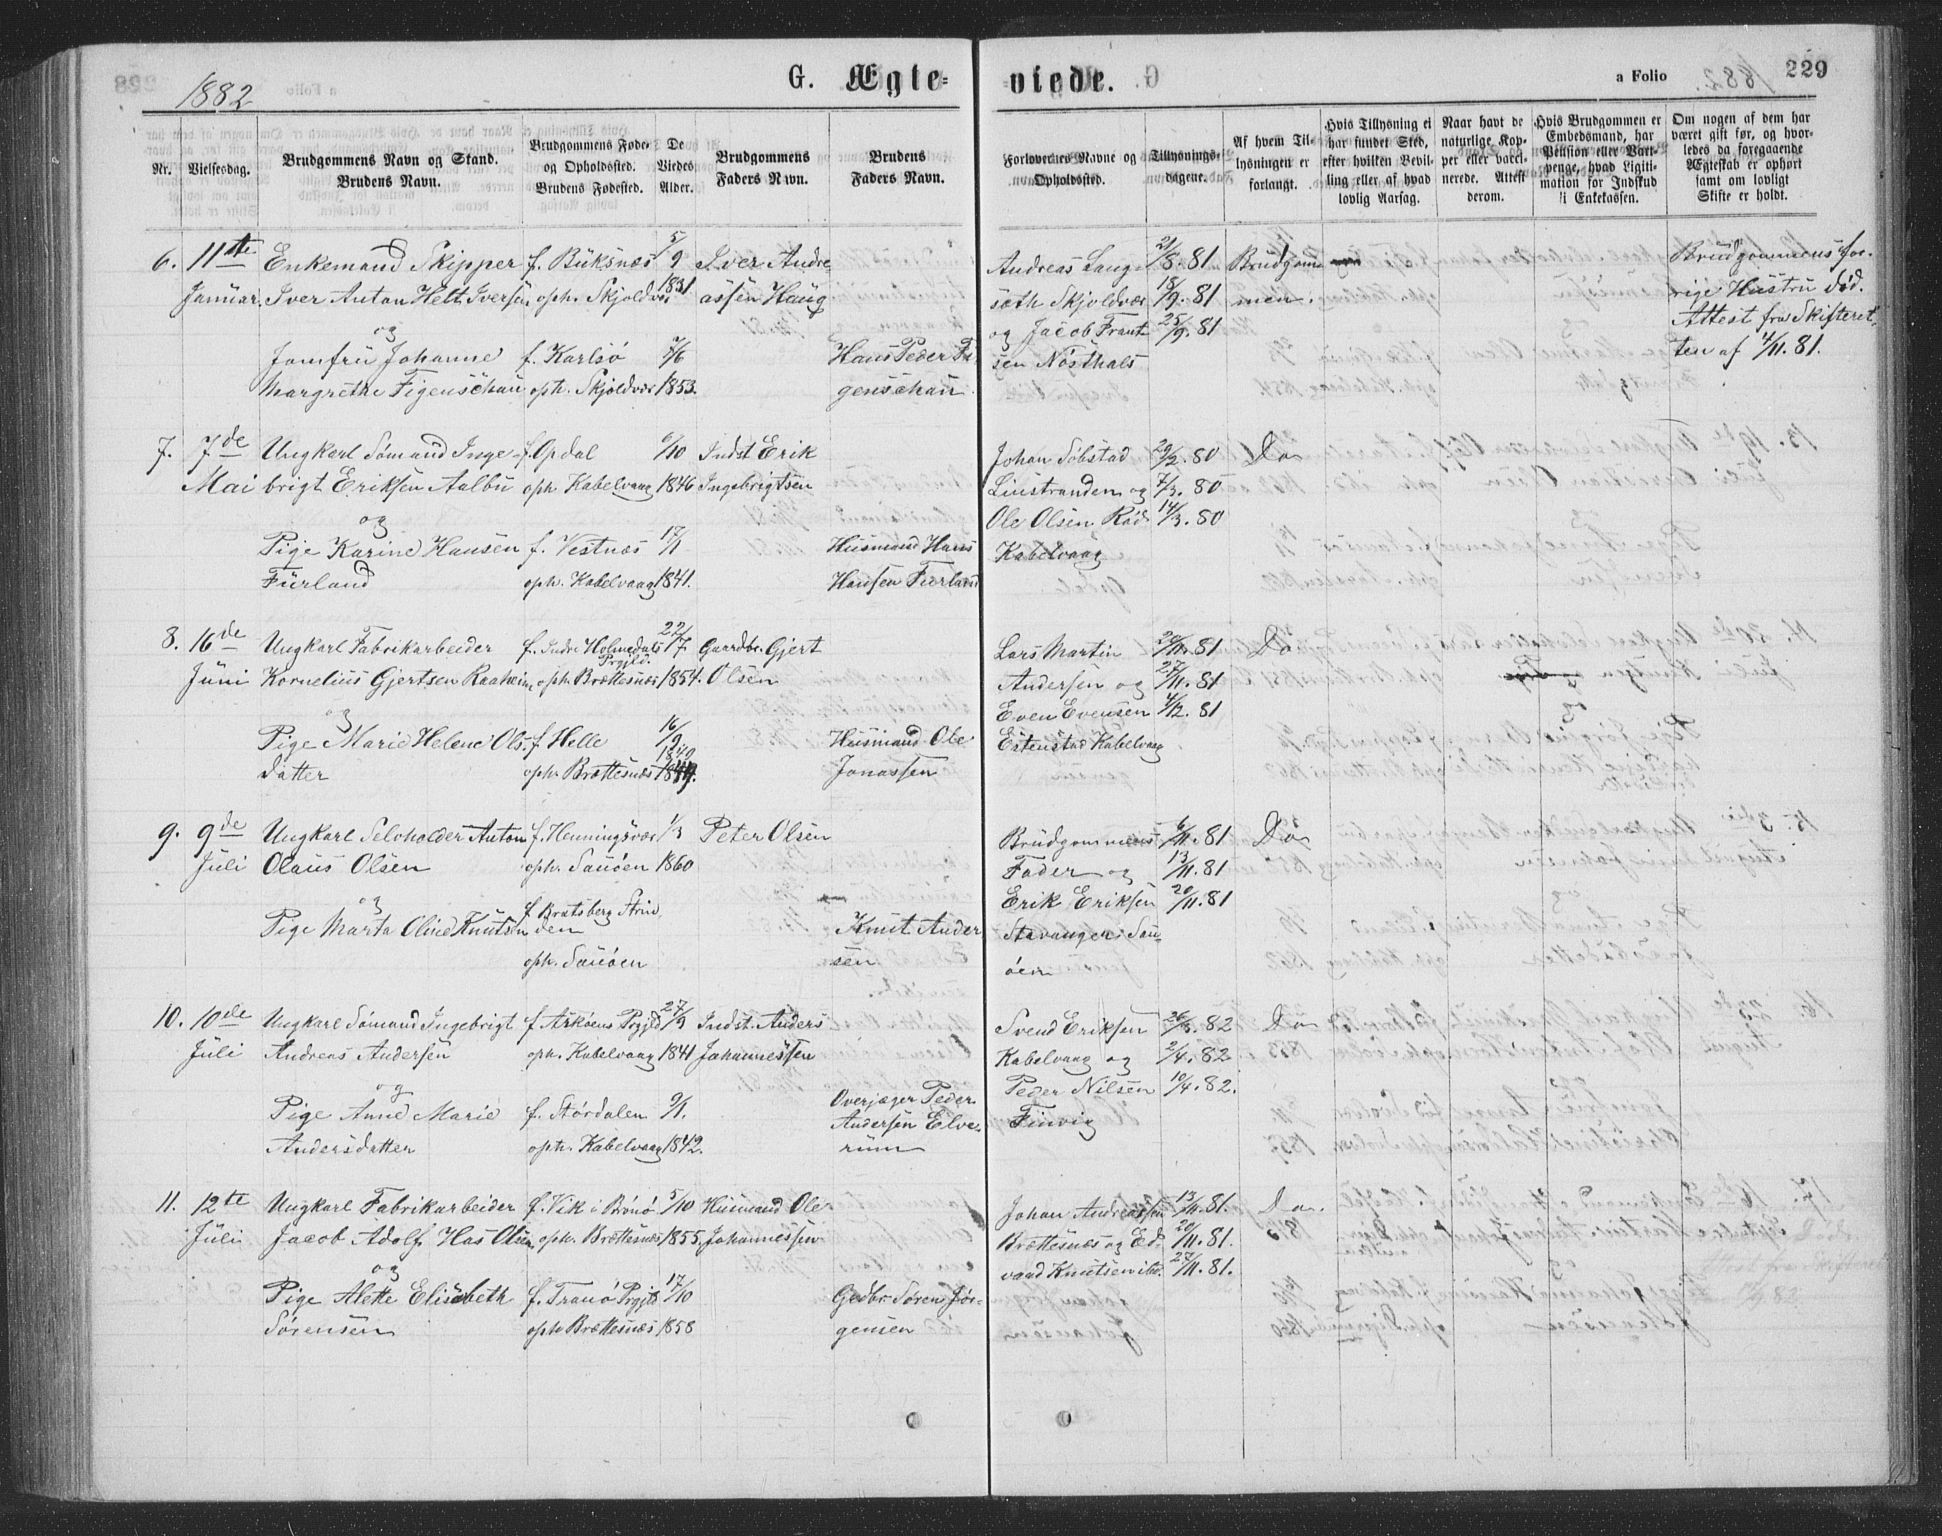 1882
G. Ægte=
viede.
a Folio
229
Nr.
Vielsesdag.
Brudgommens Navn og Stand.
Brudens Navn.
Brudgommens Føde-
og Opholdssted.
Brudens Fødested.
De
Viedes
Alder.
Brudgommens
Faders Navn.
Brudens
Faders Navn.
Forlovernes Navne og
Opholdssted.
Tillysnings-
dagene.
Af hvem Til-
lysningen er
forlangt.
Hvis Tillysning ei
har fundet Sted,
efter hvilken Bevil-
ling eller af hvad
lovlig Aarsag.
Naar havt de
naturlige Kop-
per eller vacci-
nerede. Attest
derom.
Hvis Brudgommen er
Embedsmand, har
Pension eller Vart-
penge, hvad Ligiti-
mation for Indskud
i Enkekassen.
Om nogen af dem har
været gift før, og hvor-
ledes da foregaaende
Ægteskab er ophørt
samt om lovligt
Skifte er holdt.
6. 11te Enkemand Skipper f. Buksnæs 5/9 Iver Andre
Januar. Iver Anton Helt Iversen oph. Skjoldvær 1831 assen Haug
og
Jomfru Johanne f. Karlsø 7/6 Hans Peder Fi
Margrethe Figenschau oph. Skjoldvær 1853. genschau
Andreas Lang 21/8. 81 Brudgom
sæth Skjoldvær 18/9. 81 men.
og Jacob Frant 25/9. 81
sen Nøsthals
Brudgommens for-
rige Hustru død.
Attest fra Skifteret
ten af 4/11. 81.
7. 7de Ungkarl Sømand Inge f. Opdal 6/10 Indst Erik
Mai brigt Eriksen Aalbu oph Kabelvaag 1846 Ingebrigtsen
og
Pige Karine Hansen f. Vestnæs 17/1 Husmand Hans
Fürland oph. Kabelvaag 1841. Hansen Fürland
Johan Søbstad 29/2. 80 Do
Linstranden og 7/3. 80
Ole Olsen Rød 14/3. 80
Kabelvaag
8. 16de Ungkarl Fabrikarbeider f. Indre Holmedals 22/7 Gaardbr. Gjert
Prgjld.
Juni Kornelius Gjertsen Raaheim oph. Brættesnæs 1854. Olsen
og
Pige Marie Helene Ols f. Helle 16/9 Husmand Ole
1849
datter oph. Brættesnæs Jonassen
Lars Martin 20/11. 81 Do
Andersen og 27/11. 81
Even Evensen 4/12. 81
Estenstad Kabelvaag
9. 9de Ungkarl Selvholder Anton f. Henningsvær 1/3 Peter Olsen
Juli Olaus Olsen oph. Sauøen 1860
og
f Bratsberg Strin
Pige Marta Oline Knutsen den Knut Ander
oph. Sauøen sen
Brudgommens 6/11. 81 Do
Fader og 13/11. 81
Erik Eriksen 20/11. 81
Stavanger Sau
øen
10. 10de Ungkarl Sømand Ingebrigt f. Arkøens Prgjld 27/9 Indst. Anders
Juli Andreas Andersen oph. Kabelvaag 1841 Johannessen
og
Pige Anne Marie f. Størdalen 9/1. Overjæger Peder
Andersen Elve
Andersdatter oph. Kabelvaag 1842. rum
Svend Eriksen 26/3. 82 Do
Kabelvaag og 2/4. 82
Peder Nilsen 10/4. 82.
Finvig
11. 12te Ungkarl Fabrikarbeider f. Vik i Brønø 5/10 Husmand Ole
Juli Jacob Adolf Has Olsen oph. Brættesnæs 1855. Johannessen
og
Pige Alette Elisabeth f. Tranø Prgjld 17/10 Gdbr. Søren Jør-
Sørensen oph Brættesnæs 1858 gensen
Johan Andreassen 13/11. 81. Do.
Brættesnæs og Ed- 20/11. 81.
vard Knutsen ibd. 27/11. 81.